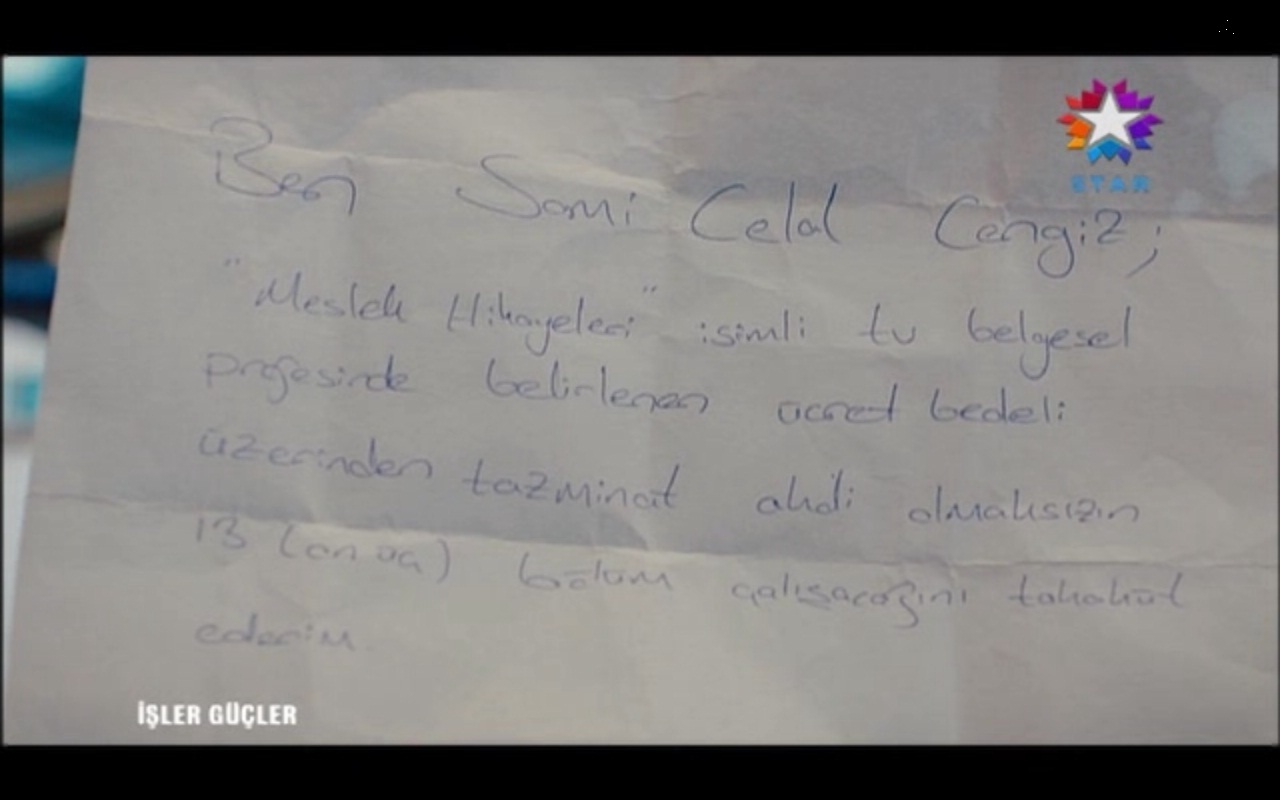 STAR
Ben Sami Celal Cengiz;
"Meslek Hikayeleri" isimli tv belgesel
projesinde belirlenen ücret bedeli
üzerinden tazminat ahdi olmaksızın
13 (on üç) bölüm çalışacağını tahahüt
ederim.
İŞLER GÜÇLER